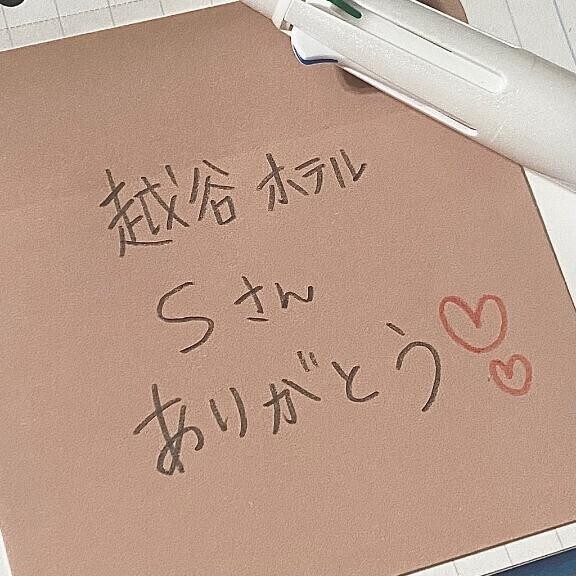 越谷 ホテル
Sさん
ありがとう♡♡